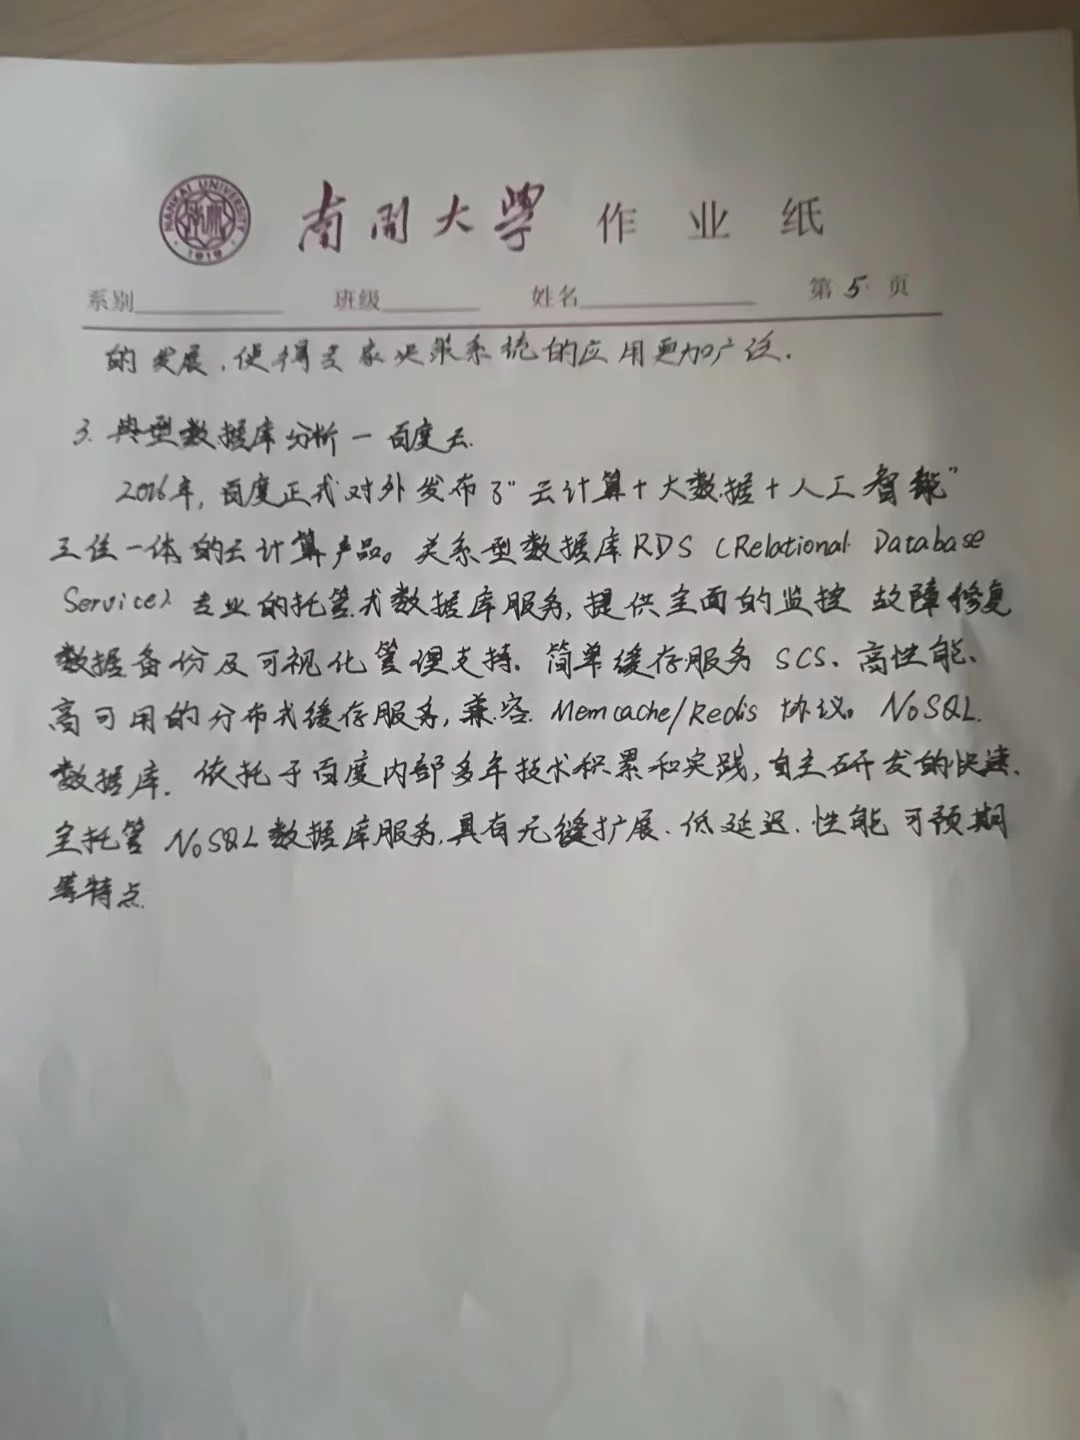 NANKAI UNIVERSITY
1919
南开大学 作业纸
系别 班级 姓名 第5页
的发展,使得专家决策系统的应用更加广泛.
3. 典型数据库分析—百度云.
2016年,百度正式对外发布了“云计算+大数据+人工智能”
三位一体的云计算产品。关系型数据库RDS (Relational Database
Service) 专业的托管式数据库服务,提供全面的监控 故障修复
数据备份及可视化管理支持。简单缓存服务 SCS、高性能、
高可用的分布式缓存服务,兼容 Memcache/Redis 协议。NoSQL
数据库. 依托于百度内部多年技术积累和实践,自主研发的快速、
全托管 NoSQL数据库服务,具有无缝扩展、低延迟、性能可预期
等特点.